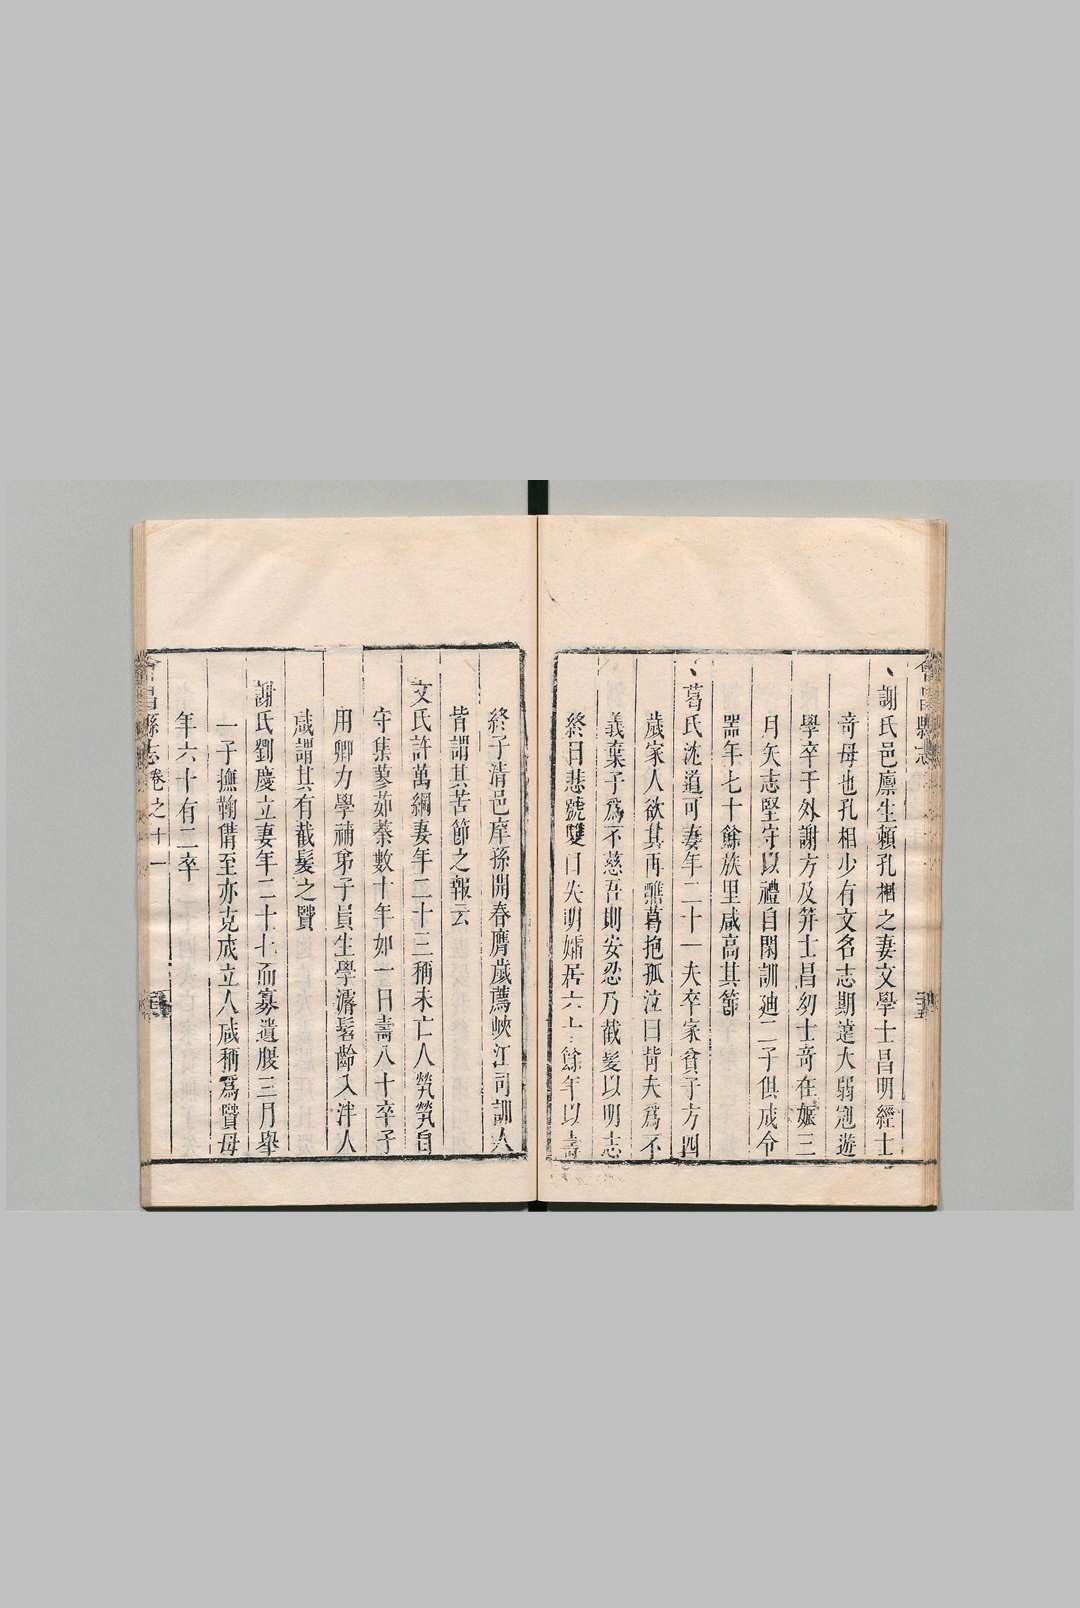 會昌縣志
謝氏邑廩生賴孔榗之妻文學士昌明經士
竒母也孔相少有文名志期遠大弱冠遊
學卒于外謝方及筓士昌幼士竒在娠三
月矢志堅守以禮自閑訓廸二子俱成令
器年七十餘族里咸高其節
葛氏沈道可妻年二十一夫卒家貧子方四
歲家人欲其再醮葛抱孤泣曰背夫爲不
義棄子爲不慈吾則安忍乃截髮以明志
終日悲號雙目失明孀居六十餘年以壽
終子清邑庠孫開春膺歲薦峽江司訓人
皆謂其苦節之報云
文氏許萬綱妻年二十三稱未亡人煢煢自
守集蓼茹蘗數十年如一日壽八十卒子
用卿力學補弟子員生學濬髫齡入泮人
咸謂其有截髮之贒
謝氏劉慶立妻年二十七而寡遺腹三月舉
一子撫鞠備至亦克成立人咸稱爲贒母
年六十有二卒
會昌縣志卷之十一